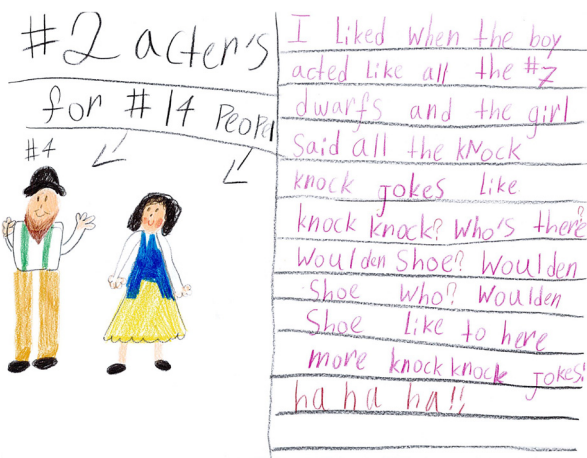 #2 acter's
for #14 People
#4
I liked when the boy
acted like all the #7
dwarfs and the girl
said all the kNock
knock jokes like
knock knock? Who's there?
Woulden Shoe? Woulden
Shoe who? Woulden
Shoe like to here
more knock knock jokes!
ha ha ha!!